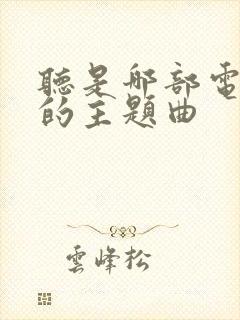 聽是那部電
的主題曲
雲峰松